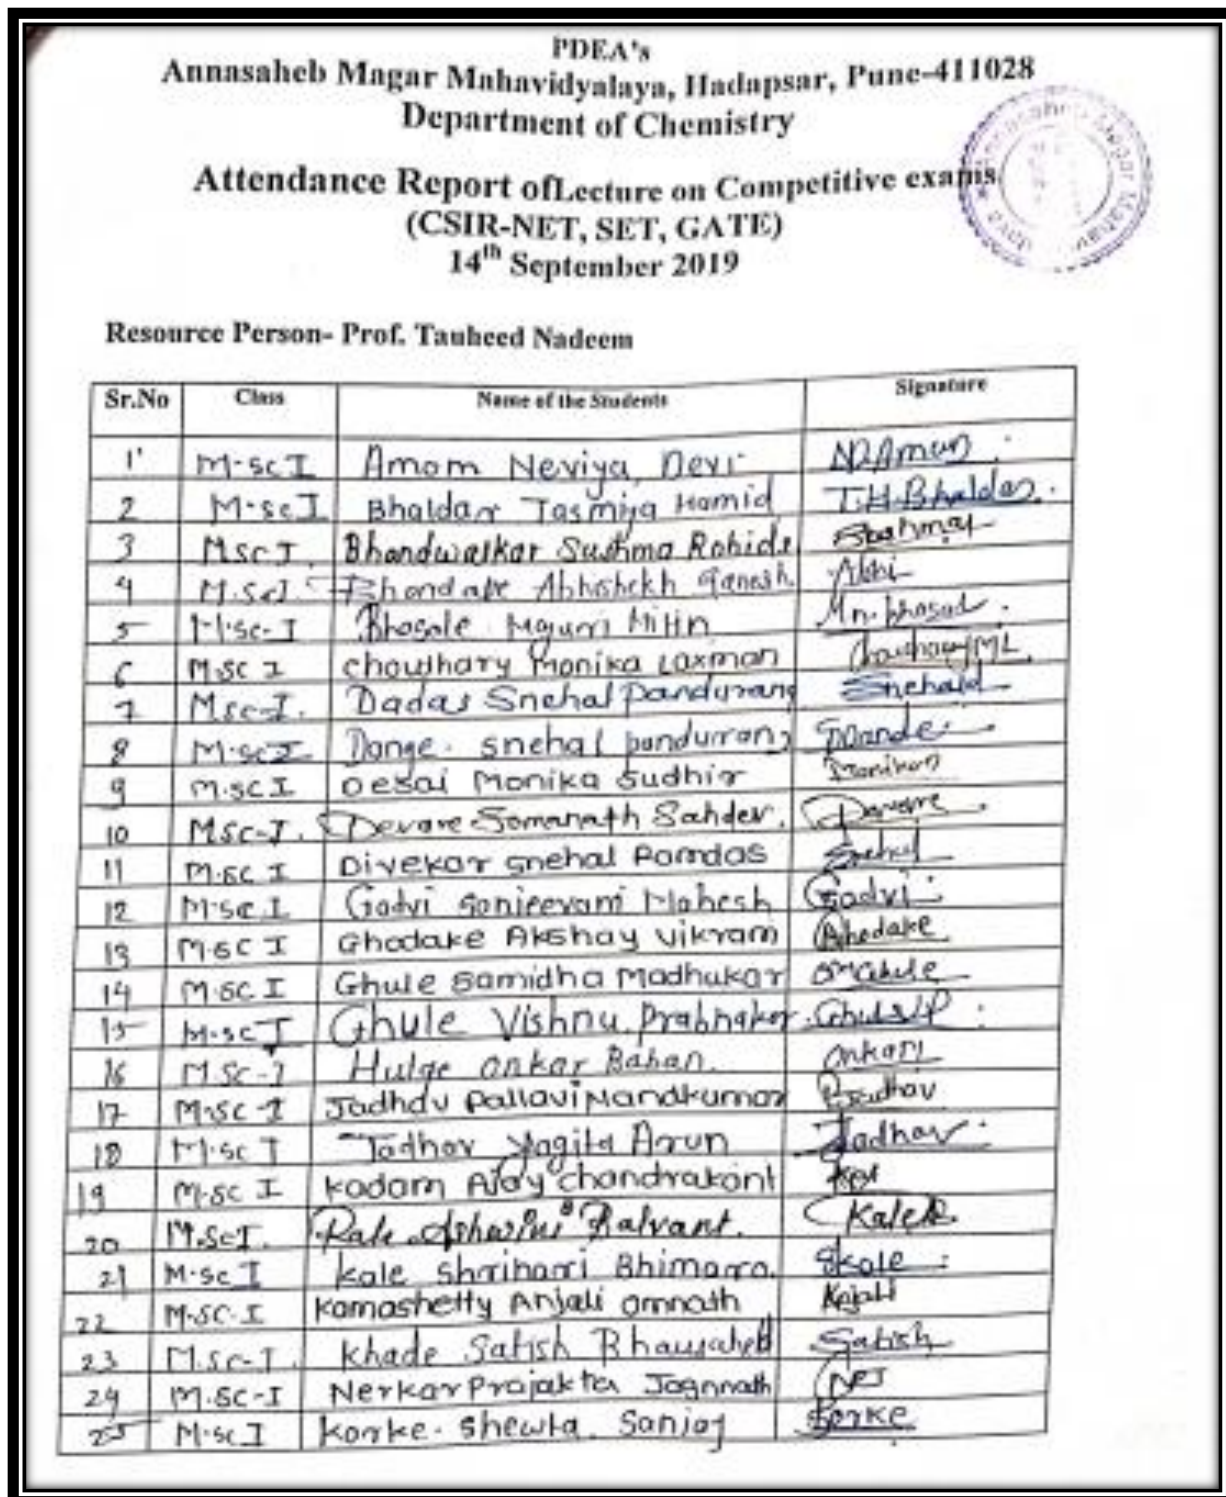 PDEA's
Annasaheb Magar Mahavidyalaya, Hadapsar, Pune-411028
Department of Chemistry
Attendance Report ofLecture on Competitive exams
(CSIR-NET, SET, GATE)
14th September 2019
Resource Person- Prof. Tauheed Nadeem
Sr.No Class Name of the Students Signature
1 M-sc I Amom Neviya Devi N.D.Amom
2 M-sc I Bhaldar Tasmiya Hamid T.H.Bhaldar
3 Msc I. Bhandwalkar Sushma Rohidas
4 M.Sc I Abhishekh Ganesh Abhi
5 M.sc-I Bhosale Mayuri Nitin
6 M.SC I choudhary Monika Laxman
7 Msc-I. Dadas Snehal Pandurang Snehald
8 M.sc I Dange snehal pandurang
9 M.SC I Desai Monika Sudhir
10 MSC-I. Devare Somanath Sahdev. Devare
11 M.SC I Divekar Snehal Ramdas Snehal
12 M.sc I Gadvi Sanjeevani Mahesh Gadvi
13 M.SC I Ghodake Akshay Vikram Ghodake
14 M.SC I Ghule Samidha Madhukar SMGhule
15 M.sc I Ghule Vishnu Prabhakar
16 M.Sc-I Hulge Onkar Baban.
17 M.sc-I Jadhav Pallavi Nandkumar PJadhav
18 M.sc I Jadhav Yogita Arun Jadhav
19 M.sc I Kadam Ajay chandrakant
20 M.Sc I. Kale Ashwini Balvant.
21 M.sc I kale shrihari Bhimarao. Skale
22 M.SC.I Kamashetty Anjali Omnath Anjali
23 M.sc-I. Khade Satish Bhausaheb Satish
24 M.SC-I Nerkar Prajakta Jagnnath
25 M.sc I Korke. Shewta. Sanjay Sorke